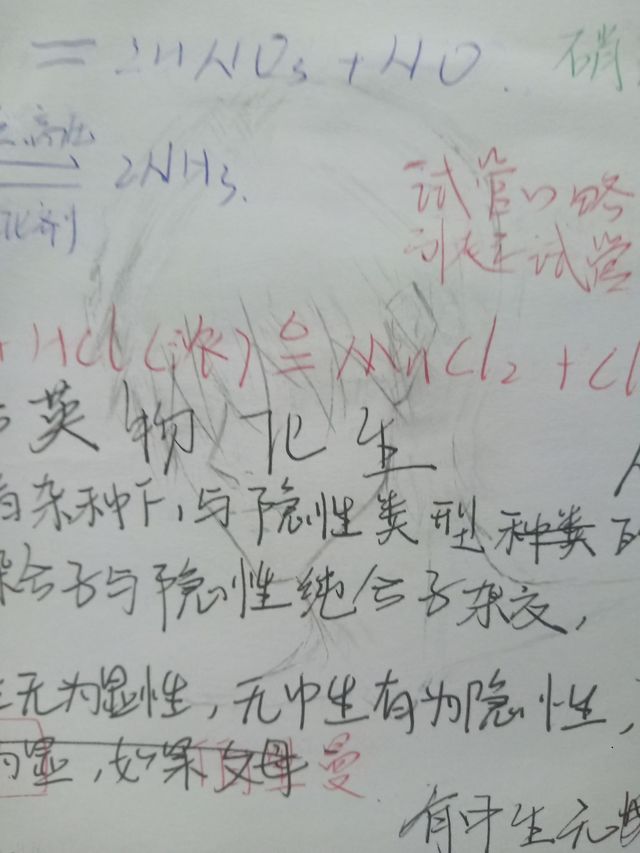 = 2HNO3 + NO. 硝
高压
2NH3.
化剂
试管口略
试管
+ HCl(浓) △= MnCl2 + Cl
英物化生
杂种F1与隐性类型种类的
杂合子与隐性纯合子杂交,
无为显性,无中生有为隐性,
为显,如果父母
有中生无